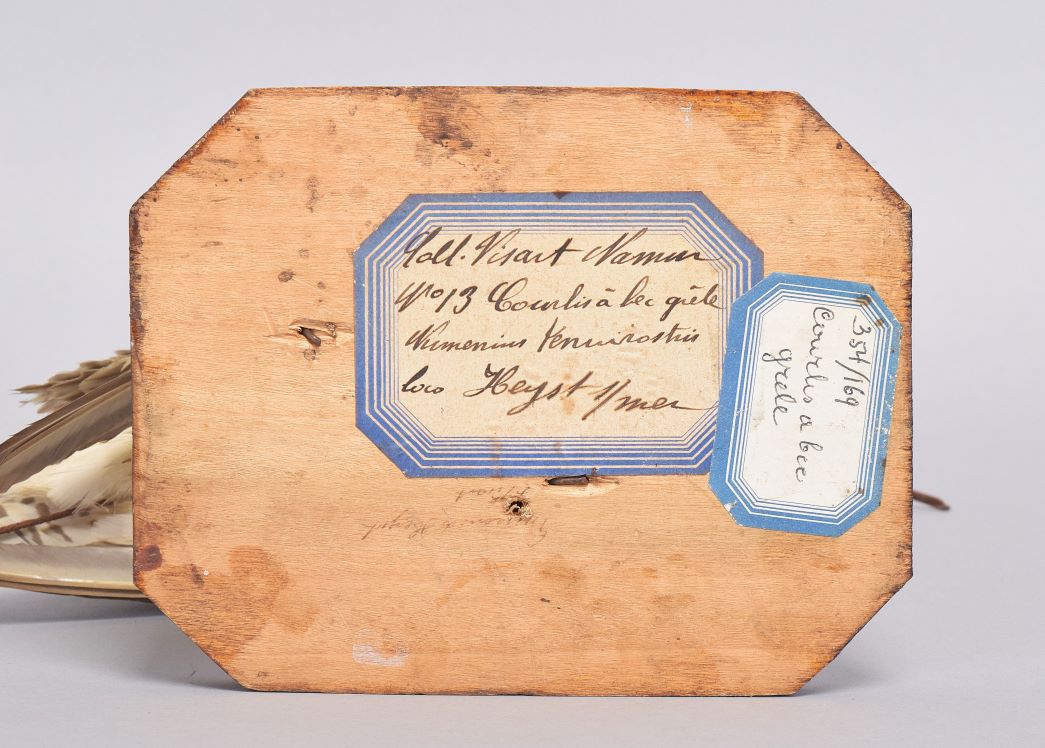 Coll. Visart Namur
No 13 Courlis à bec grèle
Numenius tenuirostris
loco Heyst s/mer
354/169
courlis a bec
grele
Visart